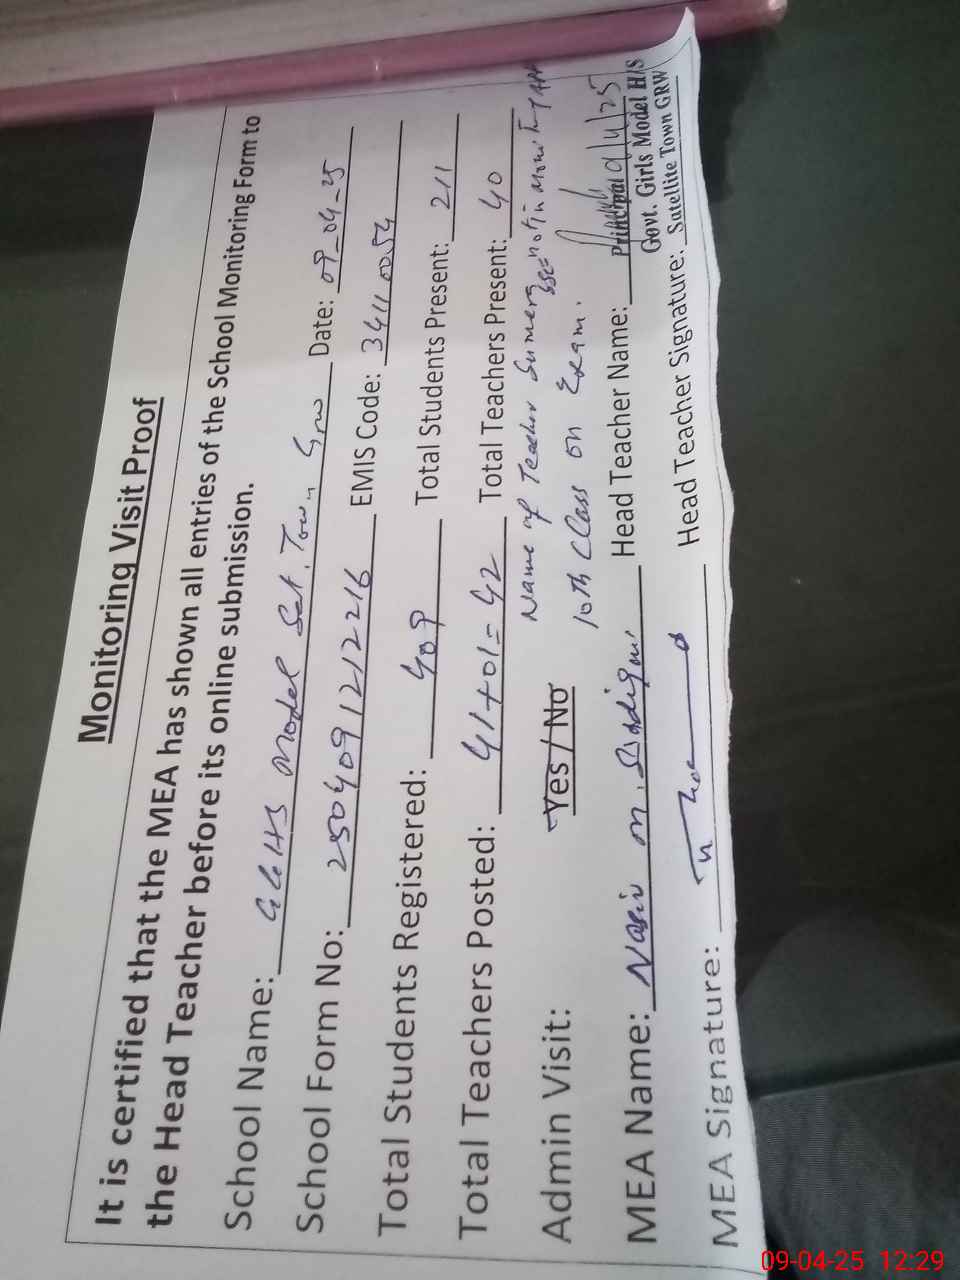 Monitoring Visit Proof
It is certified that the MEA has shown all entries of the School Monitoring Form to
the Head Teacher before its online submission.
School Name: GGHS Model Sat. Town Grw Date: 09-04-25
School Form No: 2504091212216 EMIS Code: 34110054
Total Students Registered: 409 Total Students Present: 211
Total Teachers Posted: 41+01=42 Total Teachers Present: 40
Name of Teacher SSE not in
Admin Visit: Yes / No
10th Class on Exam.
MEA Name: Nasir M. Siddiqui Head Teacher Name:
Principal 9/4/25
Govt. Girls Model H/S
MEA Signature: Head Teacher Signature: Satellite Town GRW
09-04-25 12:29